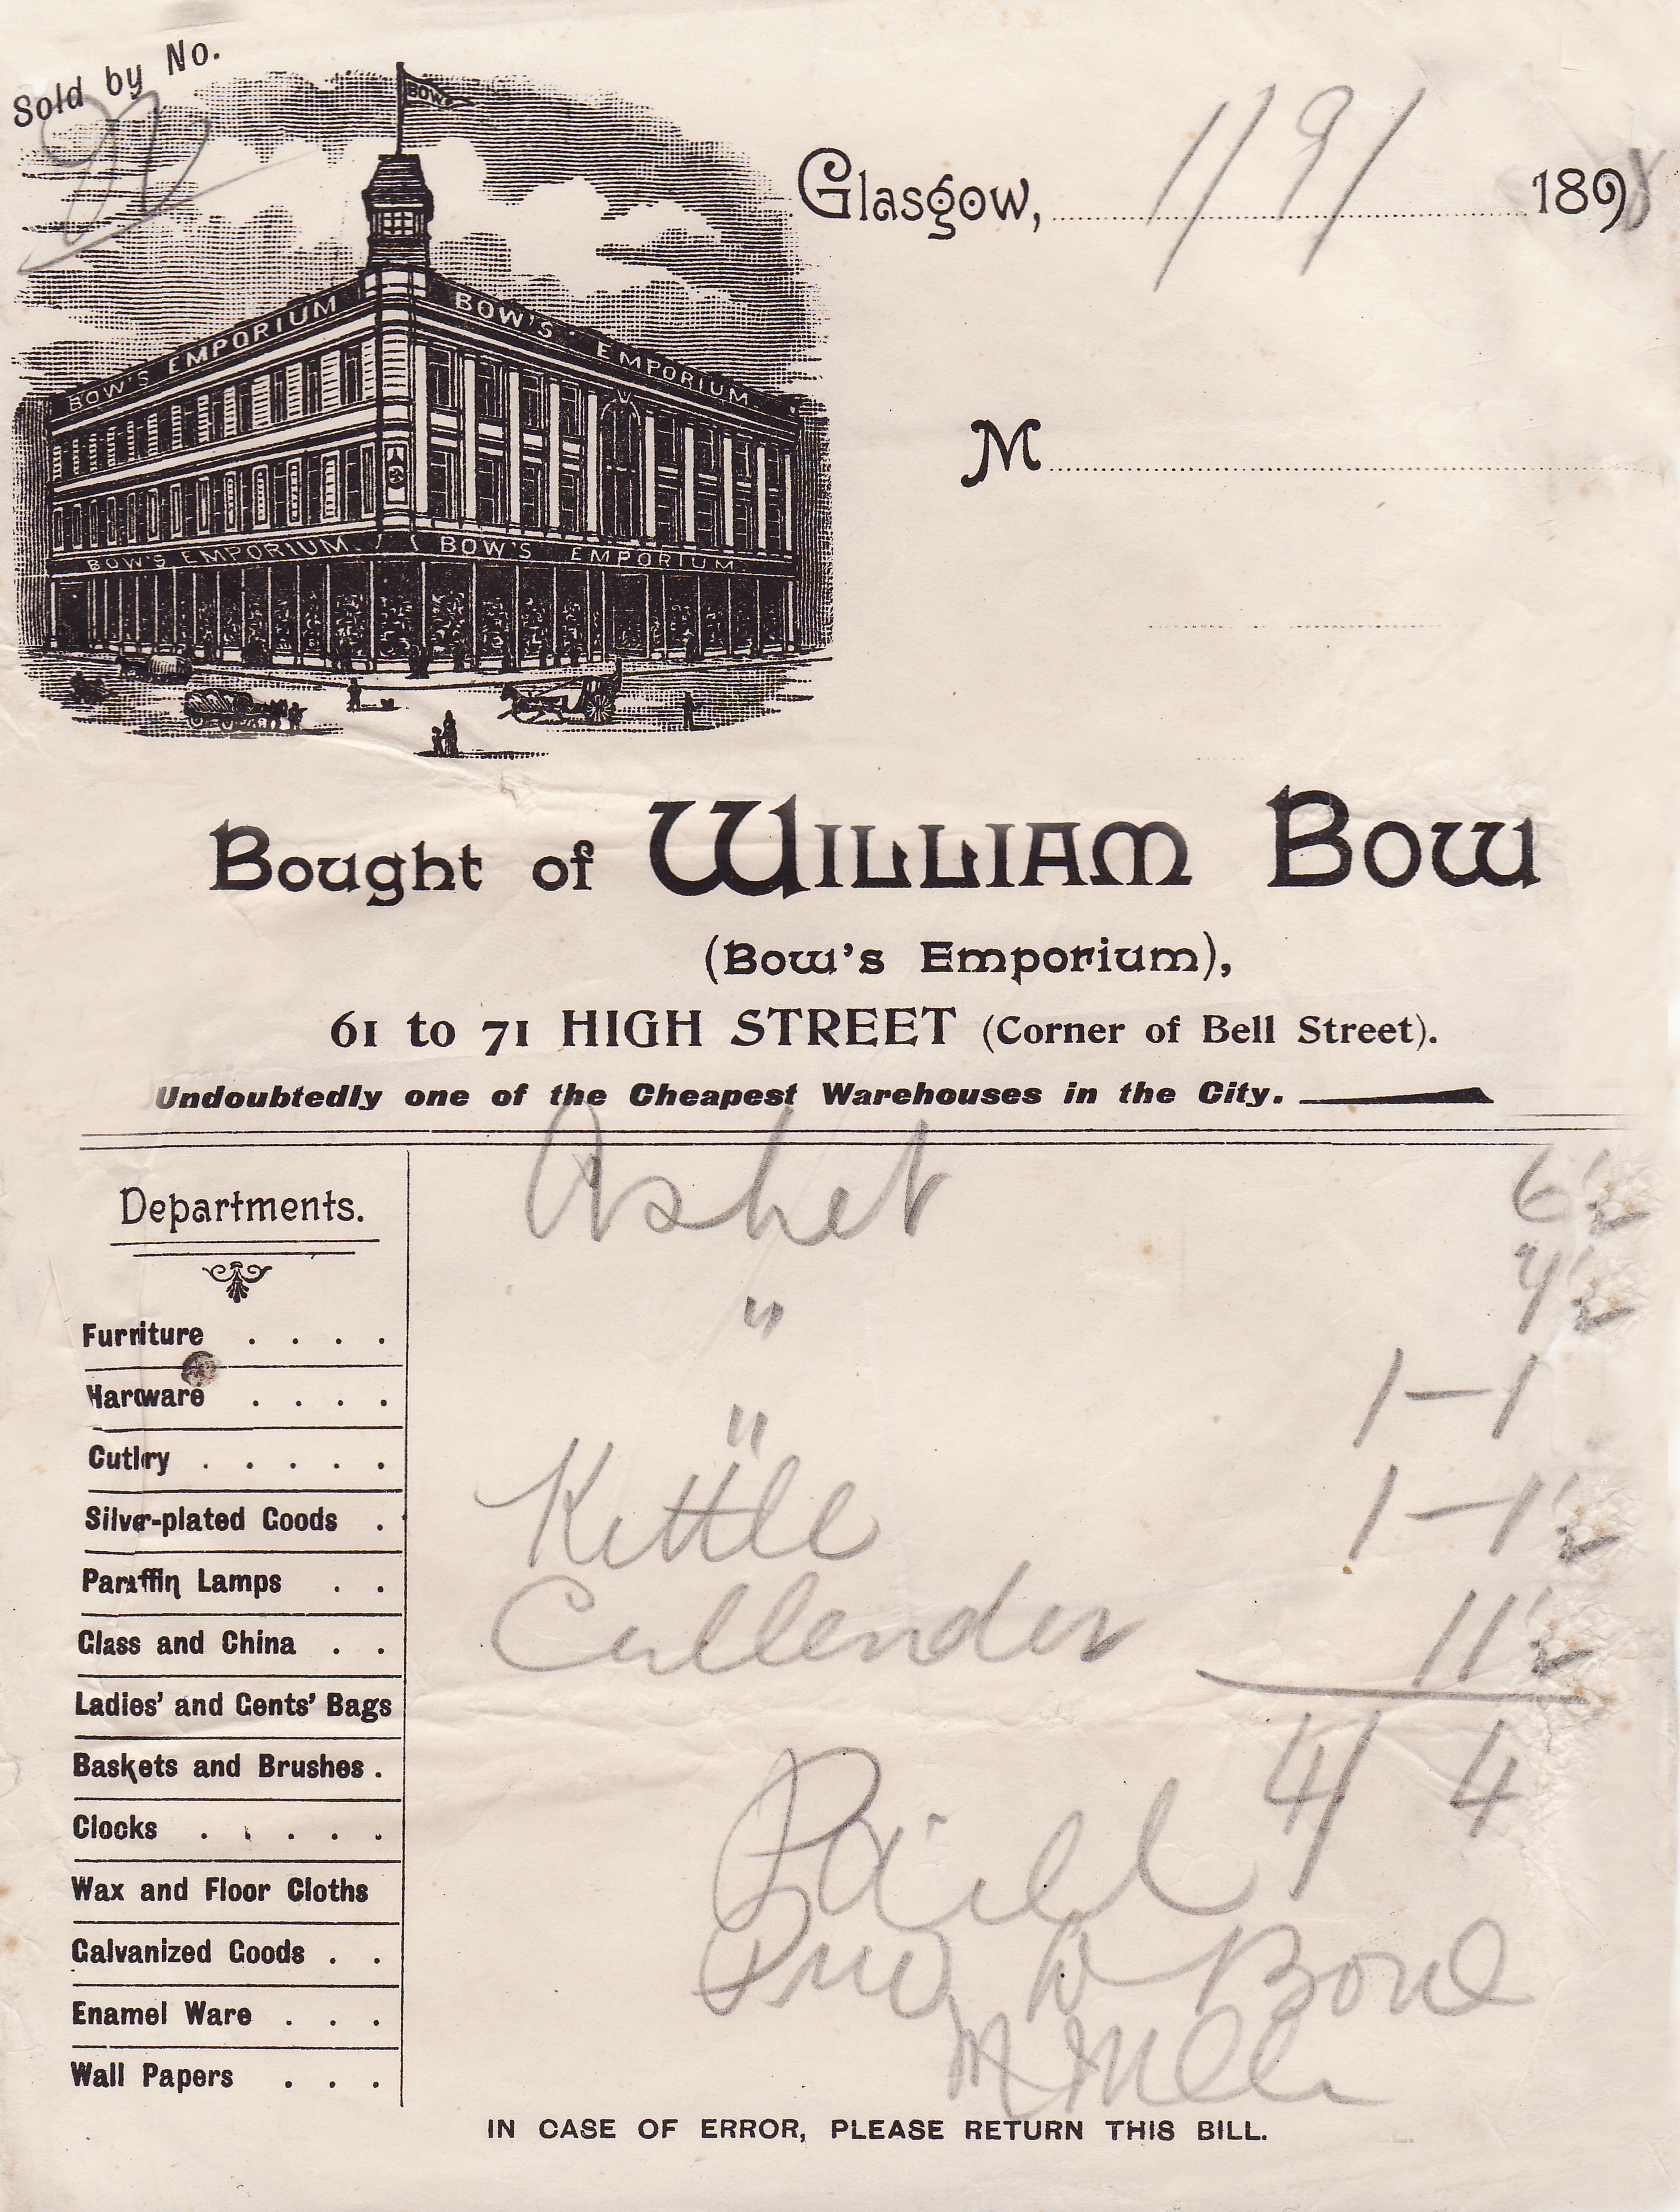 Sold by No.
BOW'S
Glasgow, 1/9/ 1898
BOW'S EMPORIUM BOW'S EMPORIUM
M
BOW'S EMPORIUM BOW'S EMPORIUM
Bought of WILLIAM BOW
(Bow's Emporium),
61 to 71 HIGH STREET (Corner of Bell Street).
Undoubtedly one of the Cheapest Warehouses in the City.
Departments.
Furniture
Hardware
Cutlry
Silver-plated Goods
Paraffin Lamps
Glass and China
Ladies' and Gents' Bags
Baskets and Brushes
Clocks
Wax and Floor Cloths
Galvanized Goods
Enamel Ware
Wall Papers
Ashet 6½
" 7½
" 1-1
Kettle 1-1½
Cullender 11½
4/4
Paid
W Bow
IN CASE OF ERROR, PLEASE RETURN THIS BILL.